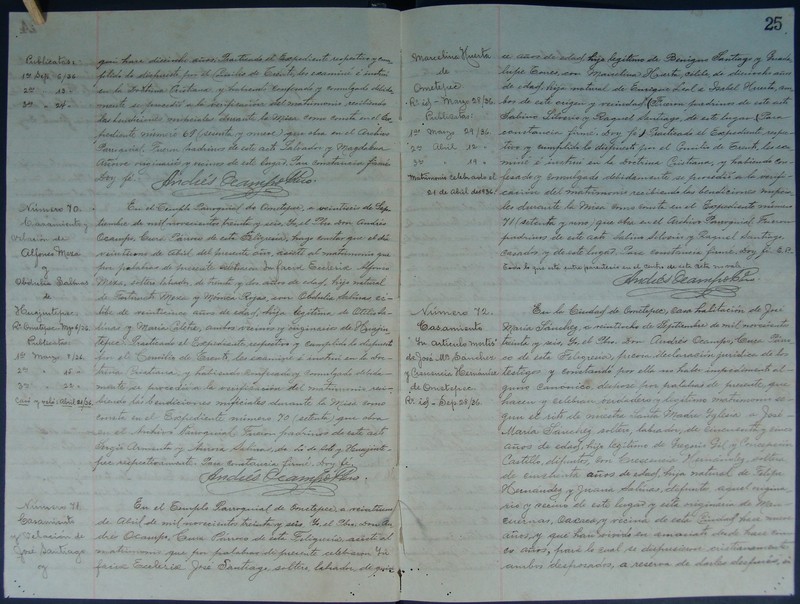 25
Publicatas:
1ª Sep. 6/36
2ª " 13 "
3ª " 24 "
que hace dieciocho años. Practicado el Expediente respectivo y cum-
plido lo dispuesto por el Concilio de Trento, los examiné é instruí
en la Doctrina Cristiana y habiendo confesado y comulgado debida-
mente se procedió a la verificación del matrimonio recibiendo
las bendiciones nupciales durante la misa como consta en el Ex-
pediente número 69 que obra en el Archivo
Parroquial. Fueron padrinos de este acto Salvador y Magdalena
originarios y vecinos de este lugar. Para constancia firmé.
Doy fe.
Andrés Ocampo Pbro.
Número 70.
Casamiento y
velación de
Alfonso Meza
y
Obdulia Salinas
de
Huajintepec
Publicatas:
1ª Marzo
2ª " 15 "
3ª " 23 "
En el Templo Parroquial de Ometepec, a veintiseis de Sep-
tiembre de mil novecientos treinta y seis, Yo, el Pbro. don Andrés
Ocampo, Cura Párroco de esta Feligresía, hago constar que el día
veintitres de Abril del presente año, asistí al matrimonio que
por palabras de presente celebraron In facie Ecclesiæ Alfonso
Meza, soltero, labrador, de treinta y dos años de edad, hijo natural
de Fortunato Meza y Mónica Rojas, con Obdulia Salinas, cé-
libe de veintinueve años de edad, hija legítima de
Salinas y María Celeste, ambos vecinos y originarios de Huajin-
tepec. Practicado el Expediente respectivo y cumplido lo dispuesto
por el Concilio de Trento, les examiné é instruí en la Doc-
trina Cristiana, y habiendo confesado y comulgado debida-
mente se procedió a la verificación del matrimonio reci-
biendo las bendiciones nupciales durante la Misa como
consta en el Expediente número 70 (setenta) que obra
en el Archivo Parroquial. Fueron padrinos de este acto
Sergio Armenta y Aurora Salinas, de
respectivamente. Para constancia firmé. Doy fe.
Andrés Ocampo Pbro.
Número 71.
Casamiento
y Velación de
José Santiago
y
En el Templo Parroquial de Ometepec a veintiuno
de Abril de mil novecientos treinta y seis Yo, el Pbro. don An-
drés Ocampo, Cura Párroco de esta Feligresía, asistí al
matrimonio que por palabras de presente celebraron In
facie Ecclesiæ José Santiago, soltero, labrador, de quin-
Marcelina Huerta
de
Ometepec
R. ié - Marzo 28/36.
Publicatas:
1ª Marzo 29/36
2ª Abril 12 "
3ª " 19 "
Matrimonio celebrado el
21 de Abril de 1936
ce años de edad, hijo legítimo de Benigno Santiago y Guada-
lupe Torres, con Marcelina Huerta, célibe, de dieciocho años
de edad, hija natural de Enrique Leal é Isabel Huerta, am-
bos de este origen y vecindad (Fueron padrinos de este acto
Sabino Silverio y Raquel Santiago, de este lugar (Para
constancia firmé. Doy fe.) Practicado el Expediente respec-
tivo y cumplido lo dispuesto por el Concilio de Trento, les exa-
miné é instruí en la Doctrina Cristiana, y habiendo con-
fesado y comulgado debidamente, se procedió a la verifi-
cación del matrimonio recibiendo las bendiciones nupcia-
les durante la Misa como consta en el Expediente número
71 (setenta y uno, que obra en el Archivo Parroquial. Fueron
padrinos de este acto Sabino Silverio y Raquel Santiago,
casados y de este lugar. Para constancia firmé. Doy fe.
Todo lo que está entre paréntesis en el centro de esta acta no vale.
Andrés Ocampo Pbro
Número 72.
Casamiento
"In artículo mortis"
de José Mª Sánchez
y Crescencia Hernández
de Ometepec
R. ié - Sep. 28/36.
En la Ciudad de Ometepec, casa habitación de José
María Sánchez, a veintiocho de Septiembre de mil novecientos
treinta y seis, Yo, el Pbro. Don Andrés Ocampo, Cura Párro-
co de esta Feligresía, previa declaración jurídica de los
testigos y constando por ella no haber impedimento al-
guno canónico, desposé por palabras de presente, que
hacen y celebran verdadero y legítimo matrimonio se-
gún el rito de nuestra Santa Madre Iglesia a José
María Sánchez, soltero, labrador, de cincuenta y cinco
años de edad, hijo legítimo de Gregorio Gil y Concepción
Castillo, difuntos, con Crescencia Hernández, soltera
de cincuenta años de edad, hija natural de Felipe
Hernández y Juana Salinas, difuntos, aquel origina-
rio y vecino de este lugar y esta originaria de
Oaxaca, y vecina de esta Ciudad hace nueve
años, y que han vivido en amasiato desde hace cin-
co años, para lo cual se dispusieron cristianamente
ambos desposados, a reserva de darles después, si